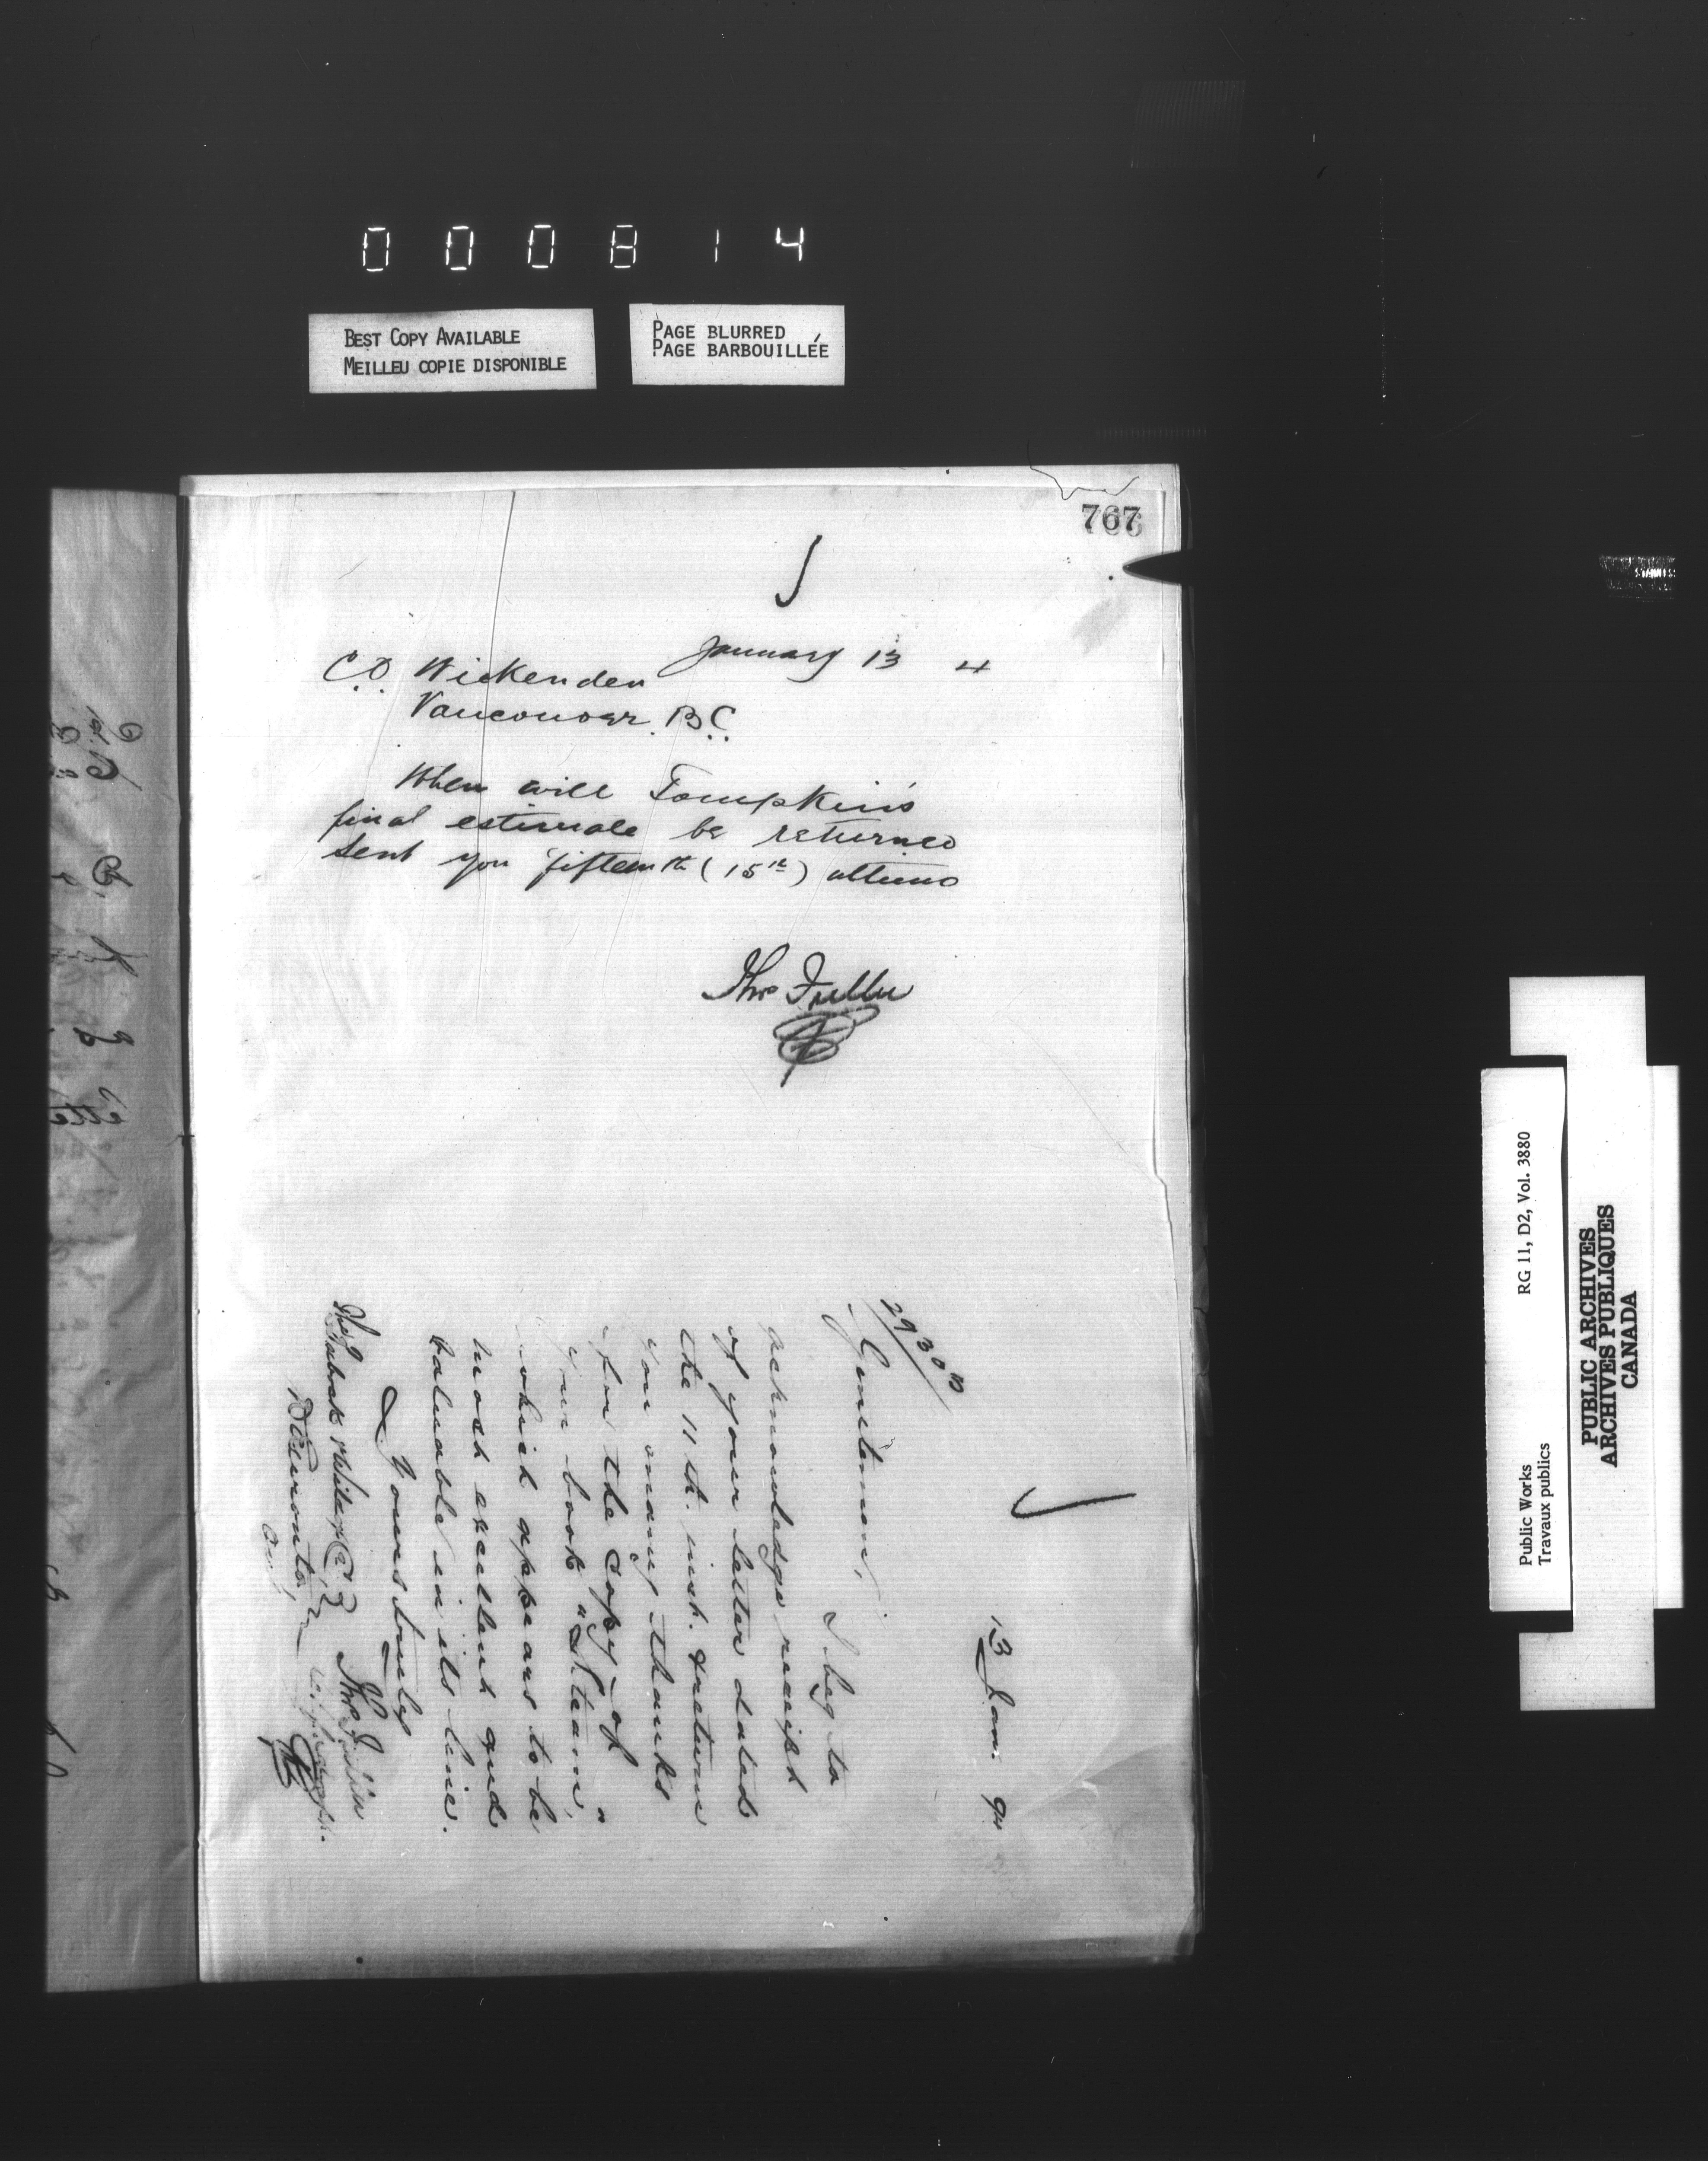 000814
BEST COPY AVAILABLE
MEILLEU COPIE DISPONIBLE
PAGE BLURRED
PAGE BARBOUILLÉE
767
January 13 4
C.D. Wickenden
Vancouver. B.C.
When will Tompkins
final estimate be returned
sent you fifteenth (15th) ultimo
Thos Fuller
13 Jan. 94
29308
Gentlemen,
I beg to
acknowledge receipt
of your letter dated
the 11th. inst. & return
you many thanks
for the copy of
your book "Steam,"
which appears to be
most excellent and
valuable in its line.
Yours truly
Thos Fuller
The Babcock & Wilcox Co
Toronto,
Ont.
Public Works
Travaux publics
RG 11, D2, Vol. 3880
PUBLIC ARCHIVES
ARCHIVES PUBLIQUES
CANADA